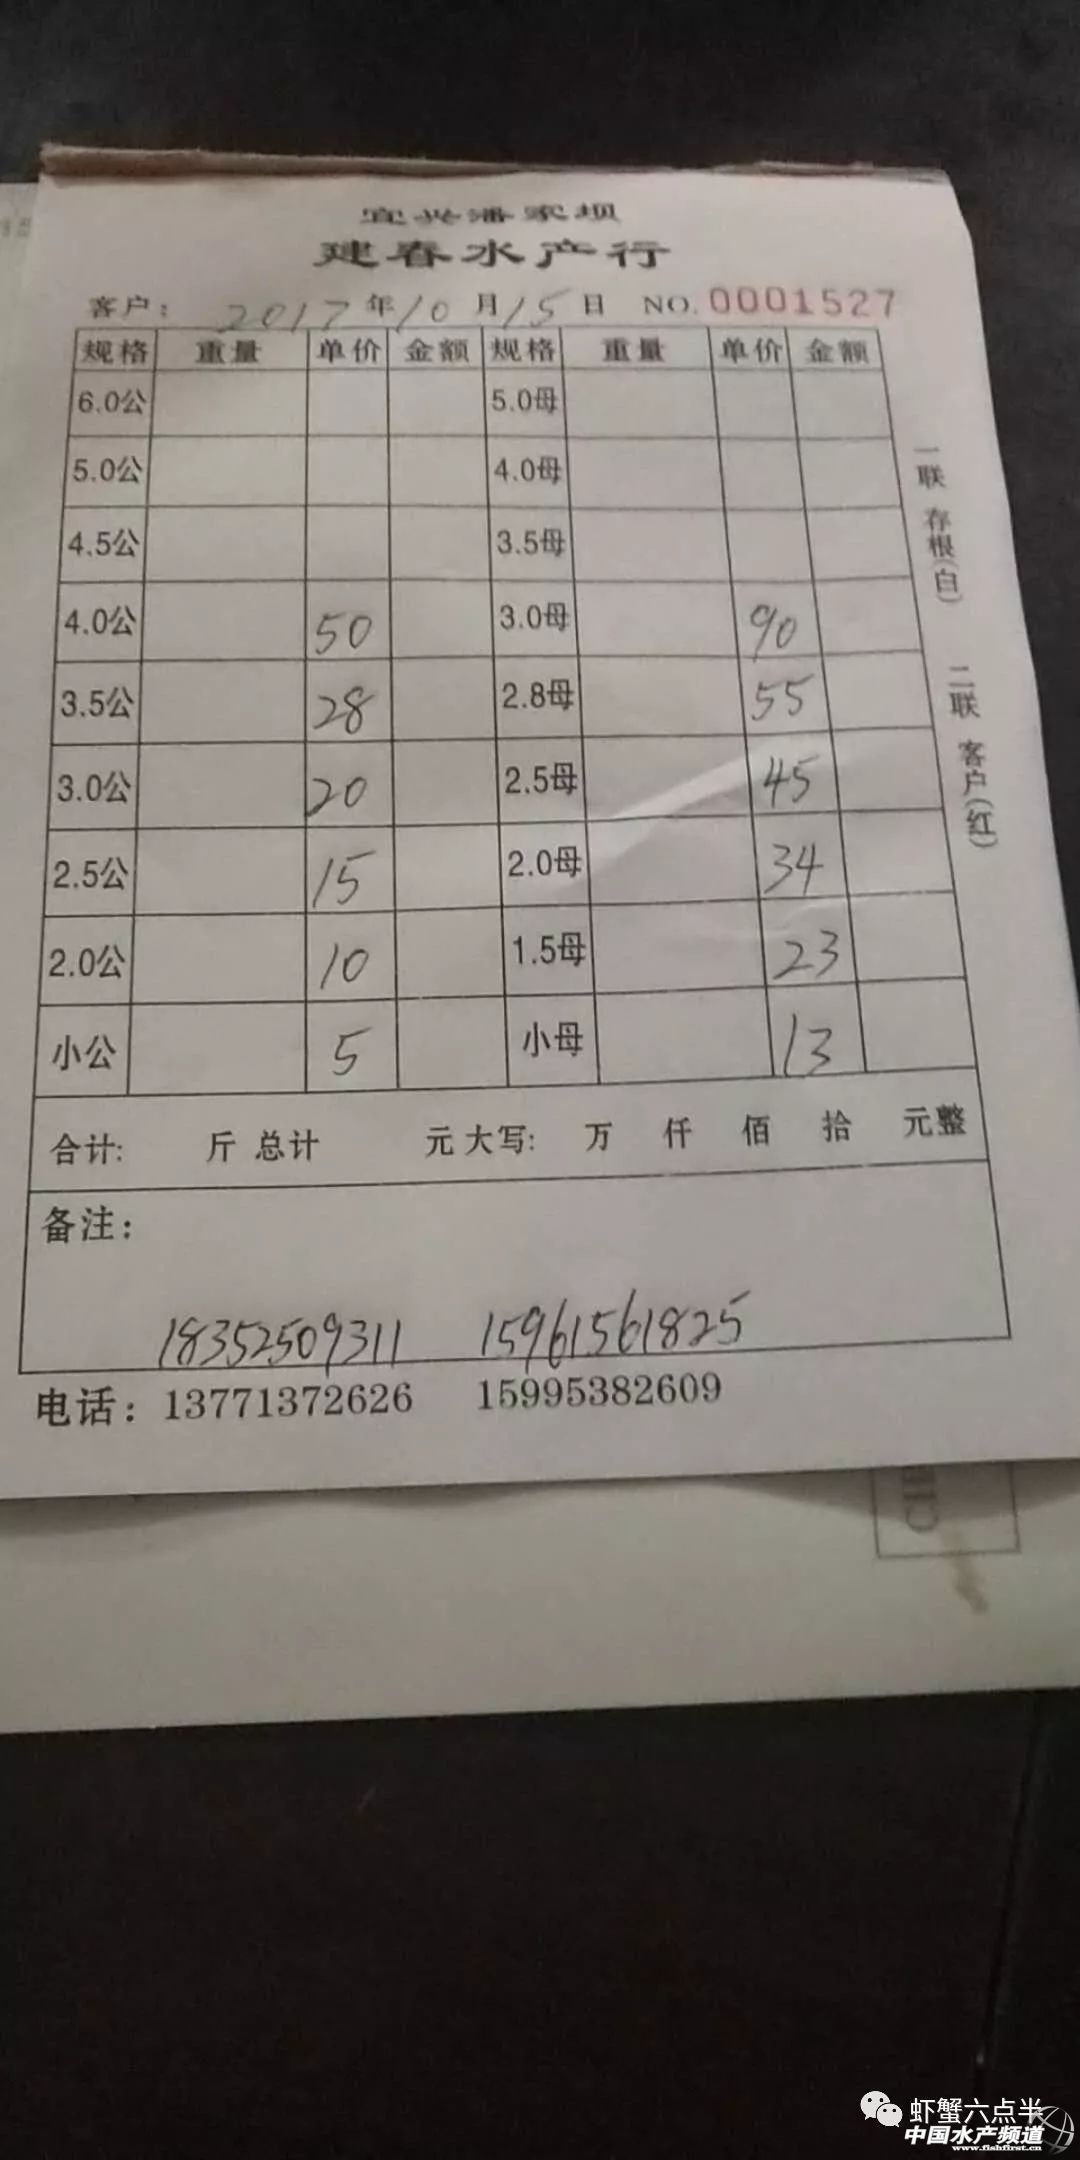 宜兴潘家坝
建春水产行
客户: 2017年10月15日 NO. 0001527
规格 重量 单价 金额 规格 重量 单价 金额
6.0公 5.0母
5.0公 4.0母
4.5公 3.5母
4.0公 50 3.0母 90
3.5公 28 2.8母 55
3.0公 20 2.5母 45
2.5公 15 2.0母 34
2.0公 10 1.5母 23
小公 5 小母 13
合计: 斤 总计 元 大写: 万 仟 佰 拾 元整
备注:
18352509311 15961561825
电话: 13771372626 15995382609
一联 存根(白) 二联 客户(红)
虾蟹六点半
中国水产频道
www.fishfirst.cn